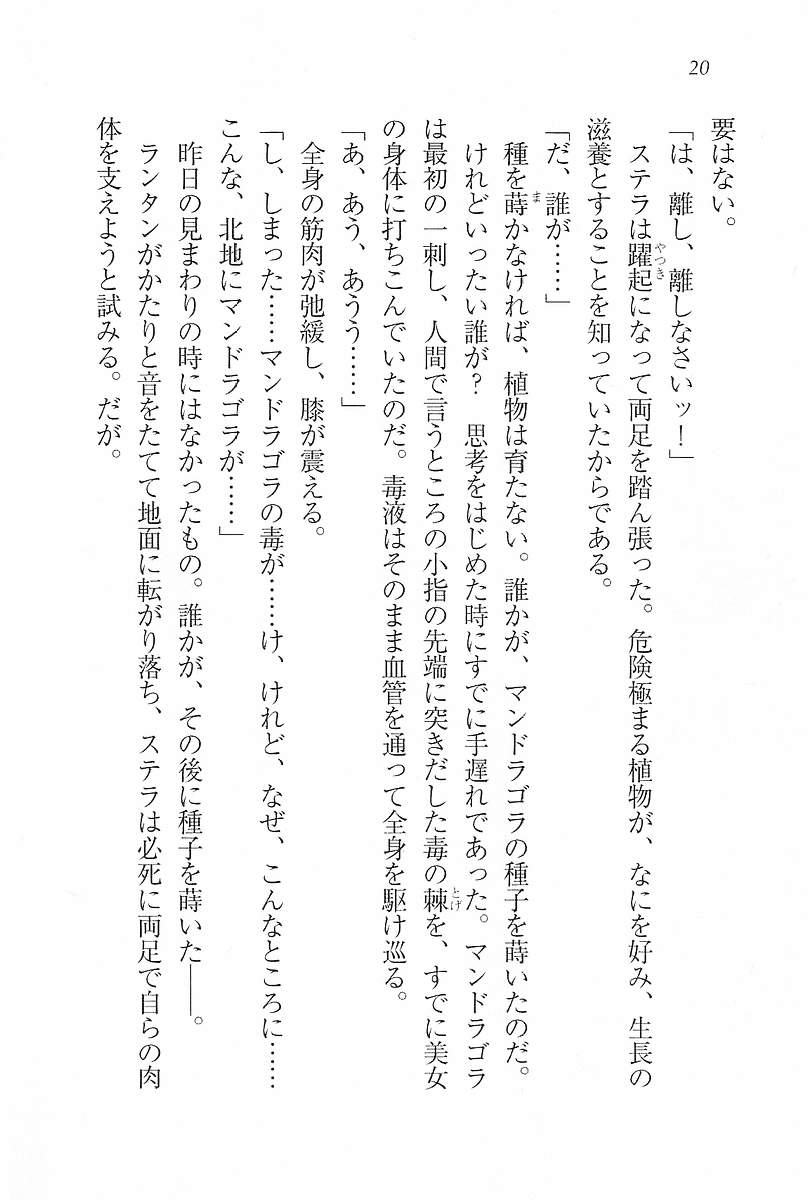 20
要はない。
「は、離し、離しなさいッ！」
ステラは躍起になって両足を踏ん張った。危険極まる植物が、なにを好み、生長の
滋養とすることを知っていたからである。
「だ、誰が……」
種を蒔かなければ、植物は育たない。誰かが、マンドラゴラの種子を蒔いたのだ。
けれどいったい誰が？　思考をはじめた時にすでに手遅れであった。マンドラゴラ
は最初の一刺し、人間で言うところの小指の先端に突きだした毒の棘を、すでに美女
の身体に打ちこんでいたのだ。毒液はそのまま血管を通って全身を駆け巡る。
「あ、あう、あうう……」
全身の筋肉が弛緩し、膝が震える。
「し、しまった……マンドラゴラの毒が……け、けれど、なぜ、こんなところに……
こんな、北地にマンドラゴラが……」
昨日の見まわりの時にはなかったもの。誰かが、その後に種子を蒔いた――。
ランタンがかたりと音をたてて地面に転がり落ち、ステラは必死に両足で自らの肉
体を支えようと試みる。だが。